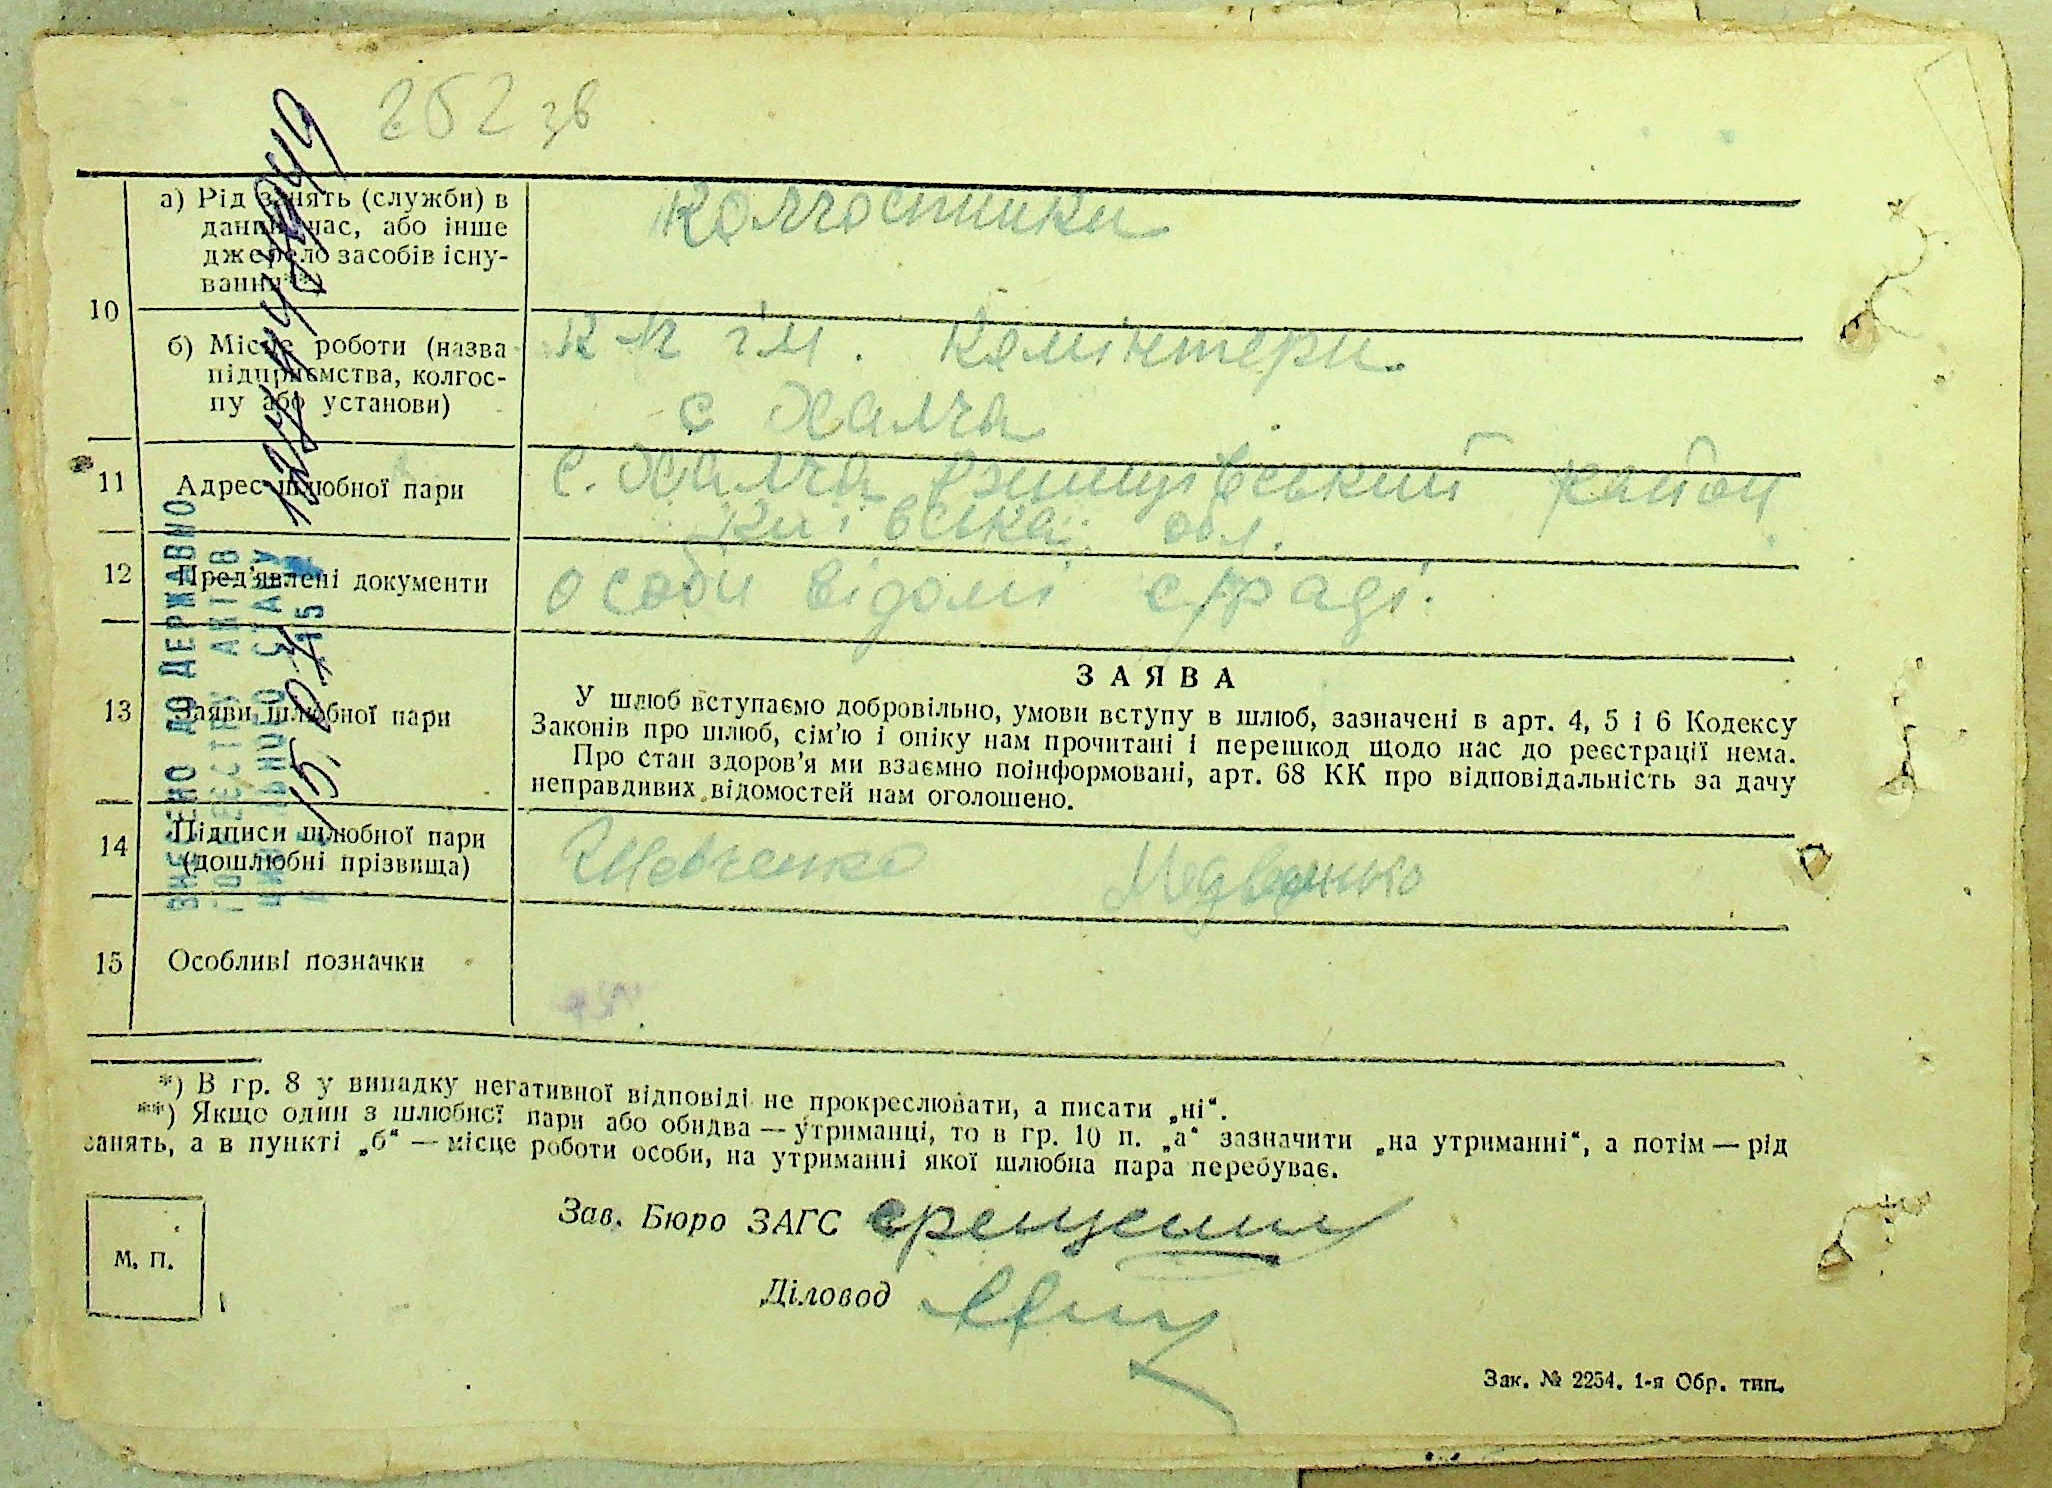 262 зв
а) Рід занять (служби) в
даний час, або інше
джерело засобів існу-
вання**)
Колгоспники
10
б) Місце роботи (назва
підприємства, колгос-
пу або установи)
ім. Комінтерн
с Халча
11
Адрес шлюбної пари
с. Халча Ржищівський район
Київська обл.
12
Пред'явлені документи
особи відомі с/раді.
13
Заяви шлюбної пари
ЗАЯВА
У шлюб вступаємо добровільно, умови вступу в шлюб, зазначені в арт. 4, 5 і 6 Кодексу
Законів про шлюб, сім'ю і опіку нам прочитані і перешкод щодо нас до реєстрації нема.
Про стан здоров'я ми взаємно поінформовані, арт. 68 КК про відповідальність за дачу
неправдивих відомостей нам оголошено.
14
Підписи шлюбної пари
(дошлюбні прізвища)
Шевченко
15
Особливі позначки
*) В гр. 8 у випадку негативної відповіді не прокреслювати, а писати „ні“.
**) Якщо один з шлюбної пари або обидва — утриманці, то в гр. 10 п. „а“ зазначити „на утриманні“, а потім — рід
занять, а в пункті „б“ — місце роботи особи, на утриманні якої шлюбна пара перебуває.
Зав. Бюро ЗАГС
Діловод
М. П.
Зак. № 2254. 1-я Обр. тип.
ВНЕСЕНО ДО ДЕРЖАВНО
ГО РЕЄСТРУ АКТІВ
ЦИВІЛЬНОГО СТАНУ